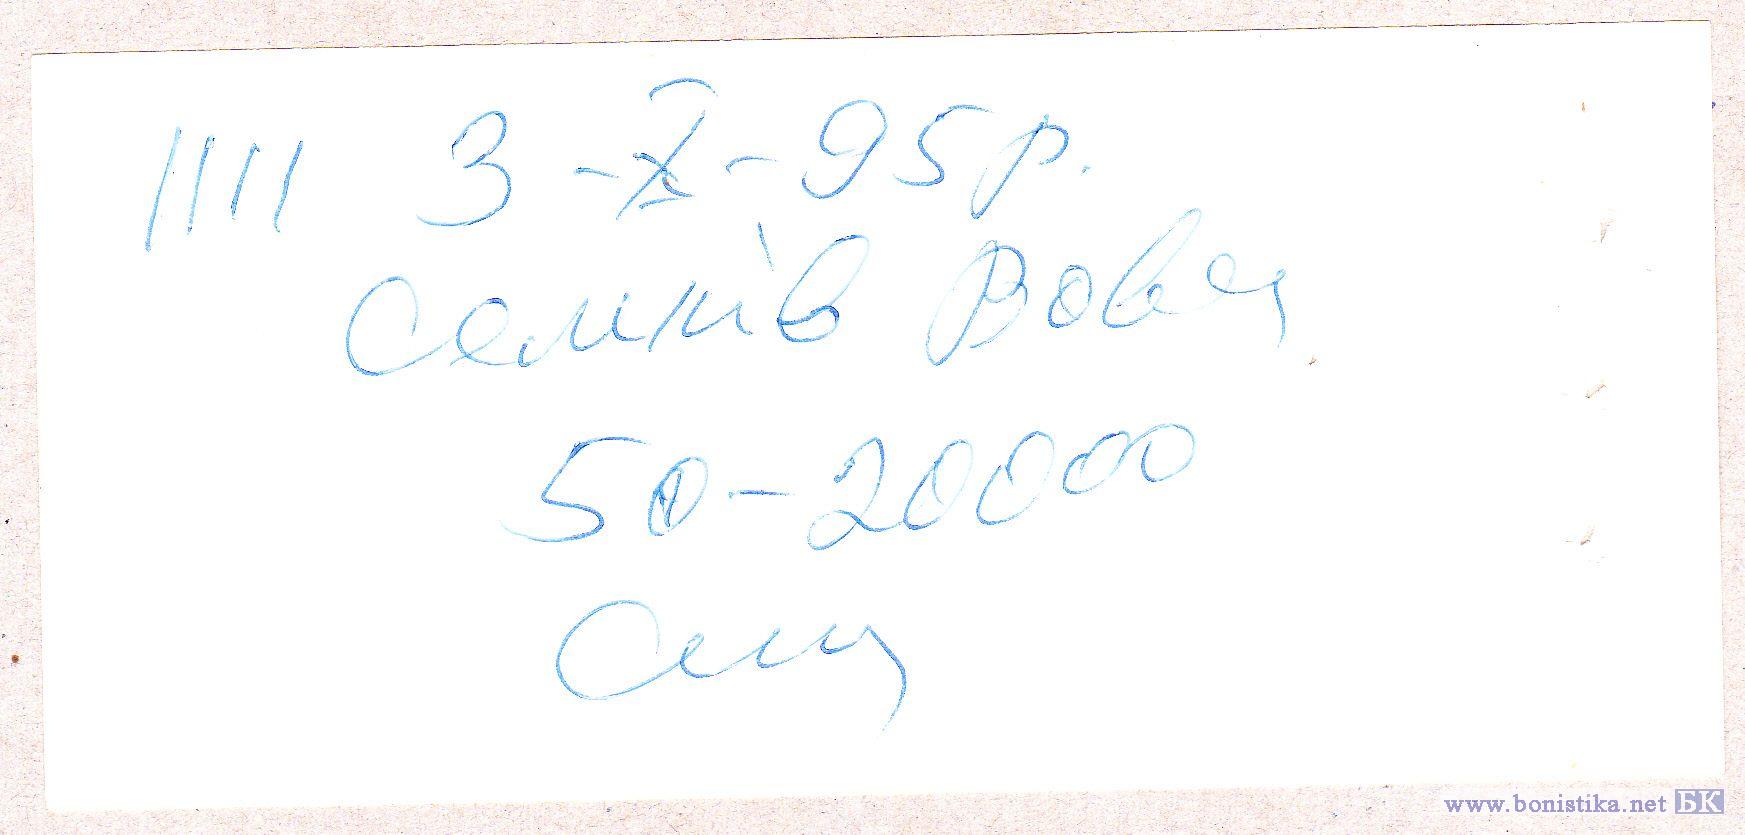 IIII 3-X-95р.
Семків Вова
50-20000
www.bonistika.net БК